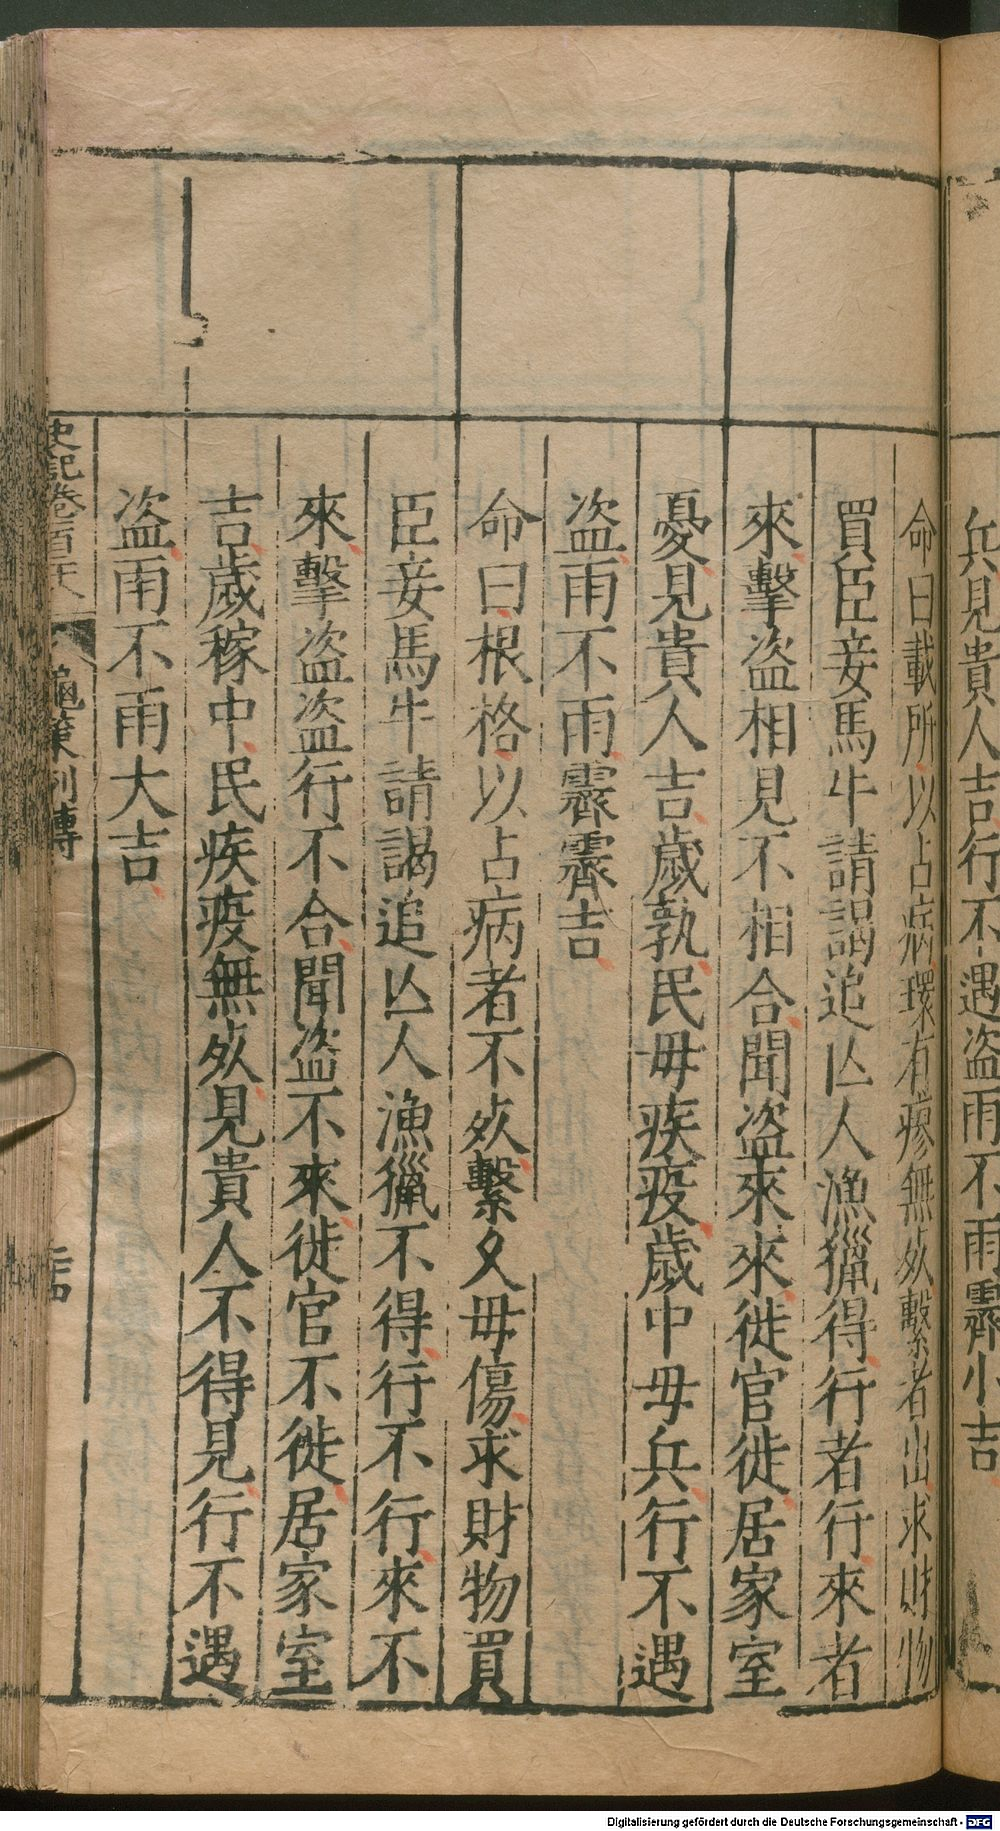 兵見貴人吉行不遇盜雨不雨霽小吉
命曰載所以占病環有瘳無死繫者出求財物
買臣妾馬牛請謁追亾人漁獵得行者行來者
來擊盜相見不相合聞盜來來徙官徙居家室
憂見貴人吉歲孰民毋疾疫歲中毋兵行不遇
盜雨不雨霽霽吉
命曰根格以占病者不死繫久毋傷求財物買
臣妾馬牛請謁追亾人漁獵不得行不行來不
來擊盜盜行不合聞盜不來徙官不徙居家室
吉歲稼中民疾疫無死見貴人不得見行不遇
盜雨不雨大吉
史記卷百二十八 龜策列傳
Digitalisierung gefördert durch die Deutsche Forschungsgemeinschaft - DFG